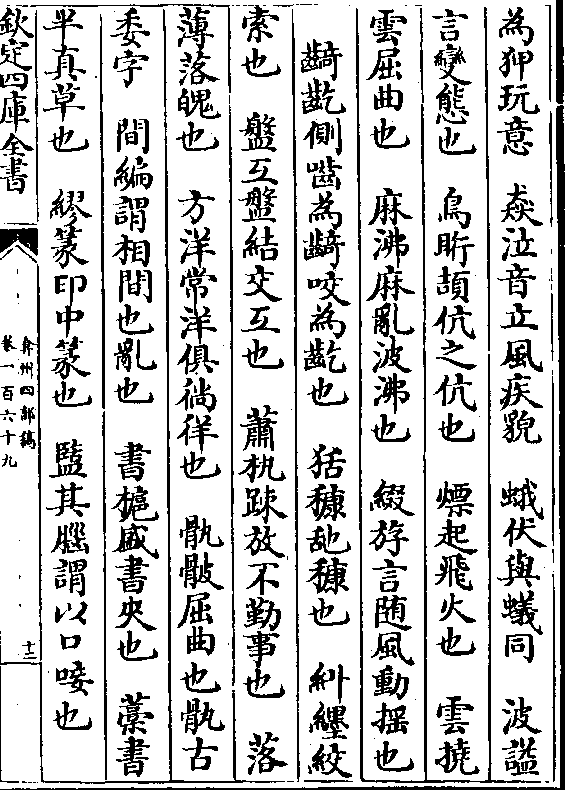 為狎玩意　猋泣音立風疾貌　蛾伏與蟻同　波謚
言變態也　鳥䀪頡伉之伉也　熛起飛火也　雲撓
雲屈曲也　麻沸麻亂波沸也　綴斿言随風動揺也
齮齕側齒為齮咬為齕也　狧穅䑛穅也　糾纆絞
索也　盤互盤結交互也　蕭䖏踈放不勤事也　落
薄落魄也　方洋常洋俱徜徉也　骫骳屈曲也骫古
委字　間編謂相間也亂也　書槴盛書夾也　藁書
半真草也　繆篆印中篆也　盬其腦謂以口唼也
欽定四庫全書
弇州四部稿
卷一百六十九
十二